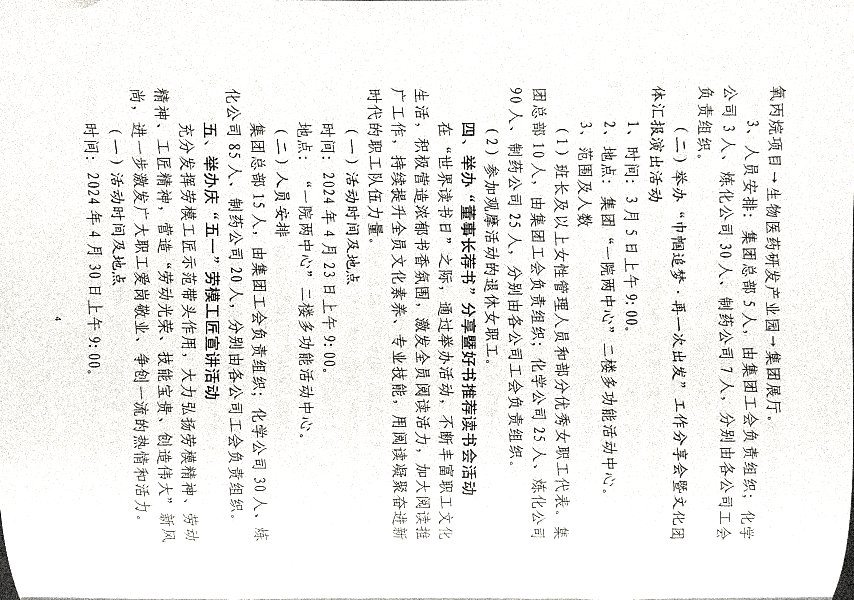 氧丙烷项目→生物医药研发产业园→集团展厅。
3、人员安排：集团总部 5 人，由集团工会负责组织；化学
公司 3 人、炼化公司 30 人、制药公司 7 人，分别由各公司工会
负责组织。
（二）举办“巾帼追梦·再一次出发”工作分享会暨文化团
体汇报演出活动
1、时间：3 月 5 日上午 9:00。
2、地点：集团“一院两中心”二楼多功能活动中心。
3、范围及人数
（1）班长及以上女性管理人员和部分优秀女职工代表。集
团总部 10 人，由集团工会负责组织；化学公司 25 人、炼化公司
90 人、制药公司 25 人，分别由各公司工会负责组织。
（2）参加观摩活动的退休女职工。
四、举办“董事长荐书”分享暨好书推荐读书会活动
在“世界读书日”之际，通过举办活动，不断丰富职工文化
生活，积极营造浓郁书香氛围，激发全员阅读活力，加大阅读推
广工作，持续提升全员文化素养、专业技能，用阅读凝聚奋进新
时代的职工队伍力量。
（一）活动时间及地点
时间：2024 年 4 月 23 日上午 9:00。
地点：“一院两中心”二楼多功能活动中心。
（二）人员安排
集团总部 15 人，由集团工会负责组织；化学公司 30 人、炼
化公司 85 人、制药公司 20 人，分别由各公司工会负责组织。
五、举办庆“五一”劳模工匠宣讲活动
充分发挥劳模工匠示范带头作用，大力弘扬劳模精神、劳动
精神、工匠精神，营造“劳动光荣、技能宝贵、创造伟大”新风
尚，进一步激发广大职工爱岗敬业、争创一流的热情和活力。
（一）活动时间及地点
时间：2024 年 4 月 30 日上午 9:00。
4